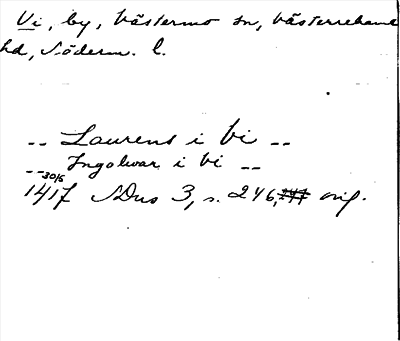 Vi, by, Västermo sn, Västerrekarne
hd, Söderm. l.
-- Laurens i Vi --
-- Ingolwar i Vi --
1417 30/5 SDns 3, s. 246, orig.